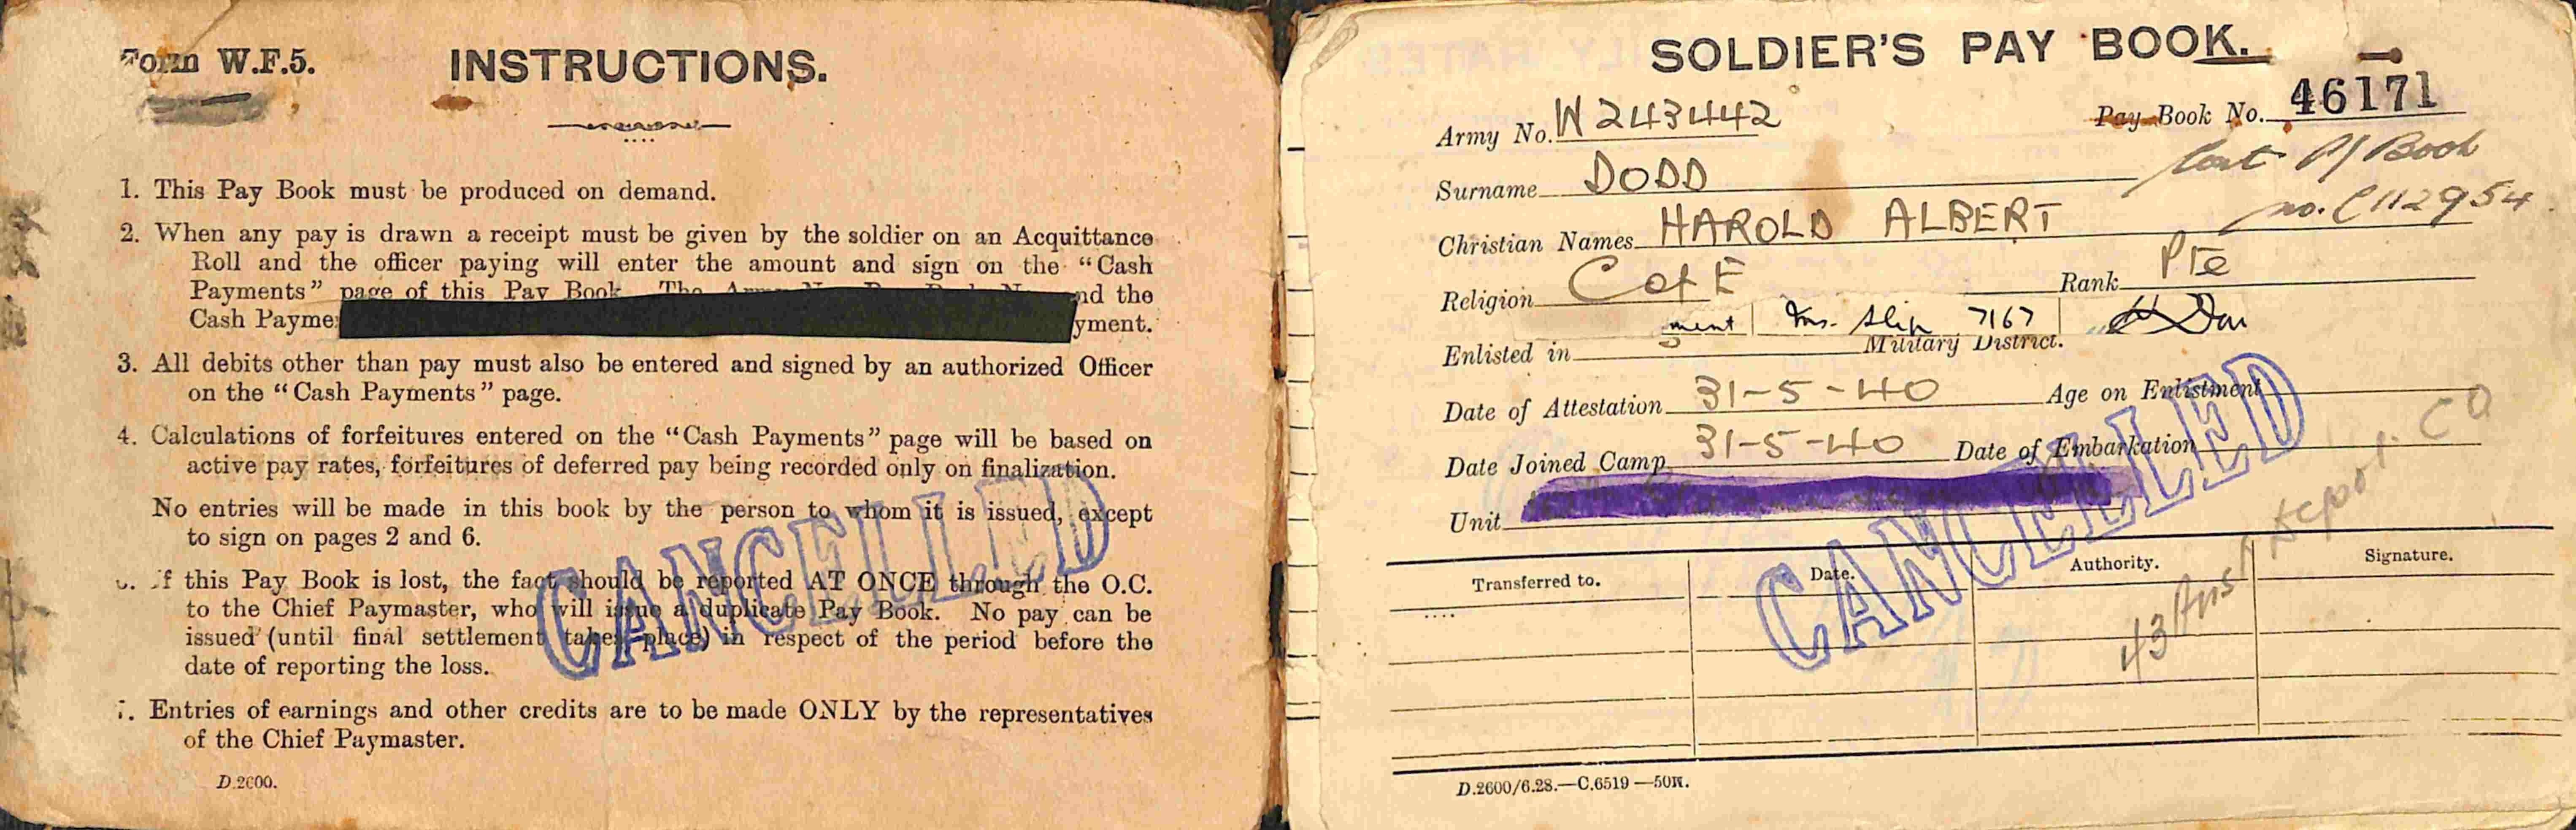 Form W.F.5. INSTRUCTIONS.
1. This Pay Book must be produced on demand.
2. When any pay is drawn a receipt must be given by the soldier on an Acquittance
Roll and the officer paying will enter the amount and sign on the “Cash
Payments” page of this Pay Book. The nd the
Cash Payme yment.
3. All debits other than pay must also be entered and signed by an authorized Officer
on the “Cash Payments” page.
4. Calculations of forfeitures entered on the “Cash Payments” page will be based on
active pay rates, forfeitures of deferred pay being recorded only on finalization.
No entries will be made in this book by the person to whom it is issued, except
to sign on pages 2 and 6.
If this Pay Book is lost, the fact should be reported AT ONCE through the O.C.
to the Chief Paymaster, who will issue a duplicate Pay Book. No pay can be
issued (until final settlement takes place) in respect of the period before the
date of reporting the loss.
Entries of earnings and other credits are to be made ONLY by the representatives
of the Chief Paymaster.
D.2600.
CANCELLED
SOLDIER'S PAY BOOK.
Pay Book No. 46171
Army No. W243442
Lost P/Book
no. C112954
Surname DODD
Christian Names HAROLD ALBERT
Religion C of E Rank Pte
ment Slip 7167
Enlisted in Military District.
Date of Attestation 31-5-40 Age on Enlistment
Date Joined Camp 31-5-40 Date of Embarkation
Unit
CANCELLED
Transferred to. Date. Authority. Signature.
43 Depot
D.2600/6.28.—C.6519—50M.